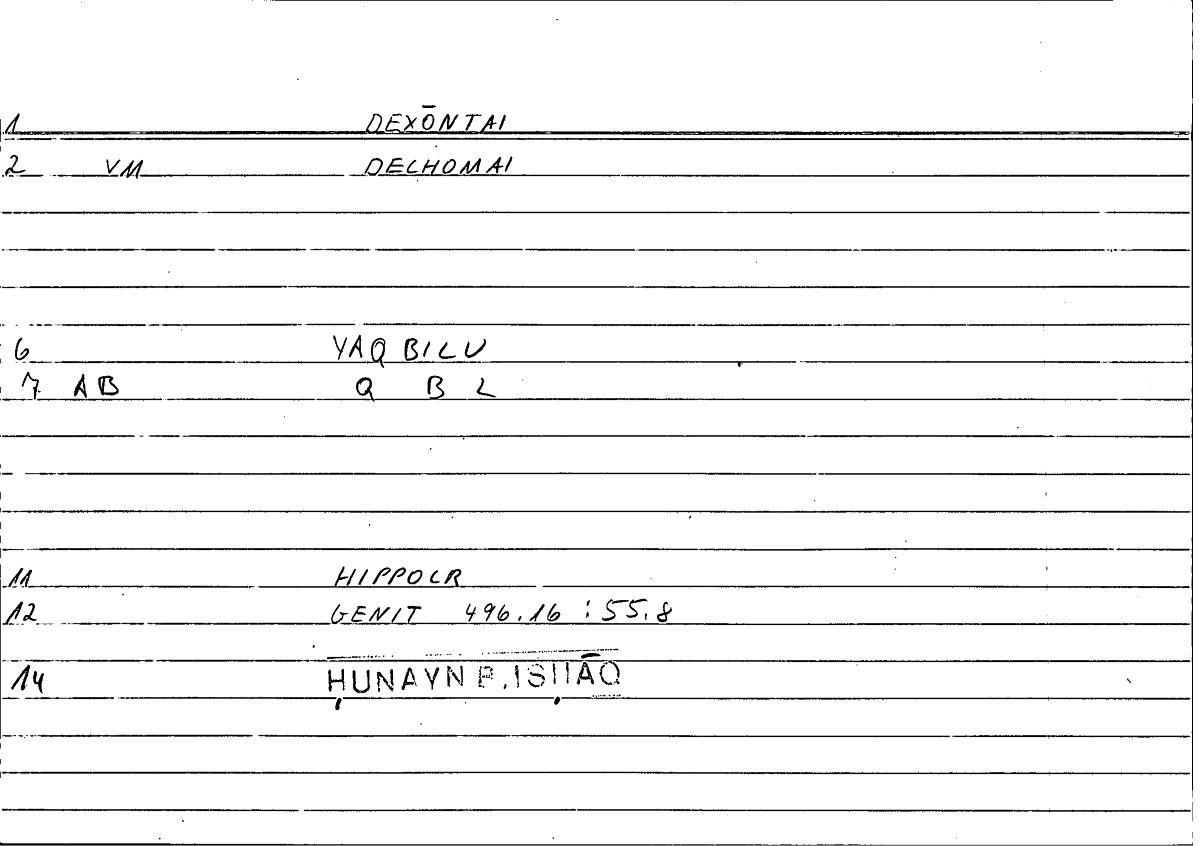 1 DEXŌNTAI
2 VM DECHOMAI
6 YAQBILU
7 AB Q B L
11 HIPPOCR
12 GENIT 496.16 : 55.8
14 ḤUNAYN B. ISḤĀQ